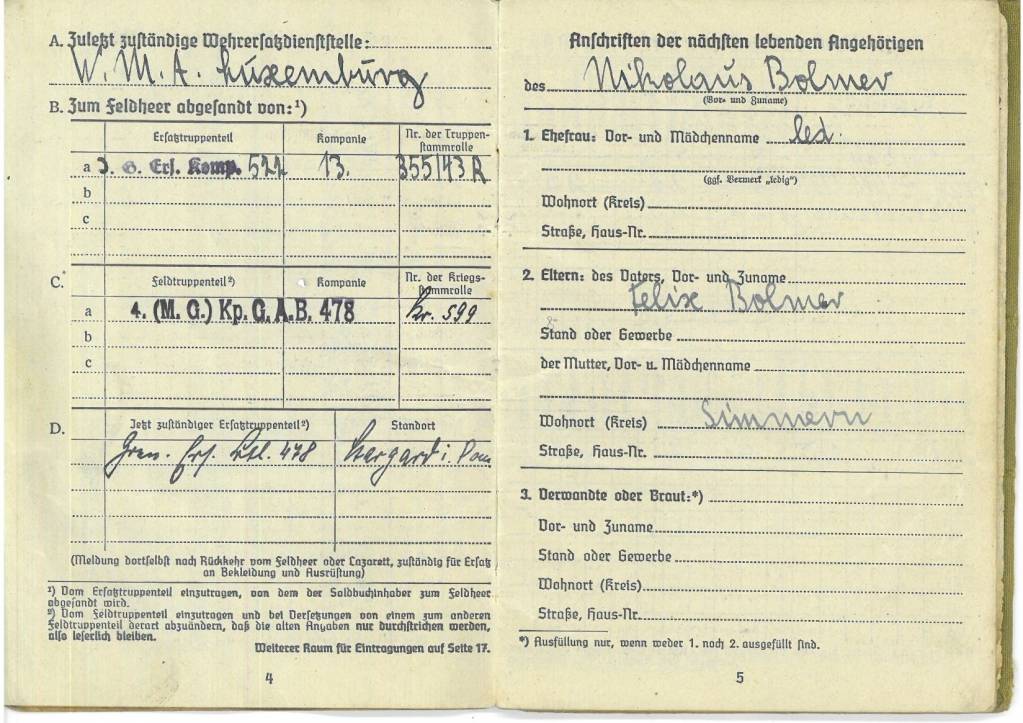 A. Zuletzt zuständige Wehrersatzdienststelle:
W. M. A. Luxemburg
B. Zum Feldheer abgesandt von:¹)
Ersatztruppenteil Kompanie Nr. der Truppen-
stammrolle
a J. G. Ers. Komp. 522 13. 355/43 R
b
c
C. Feldtruppenteil²) Kompanie Nr. der Kriegs-
stammrolle
a 4. (M. G.) Kp. G. A. B. 478 Kr. 599
b
c
D. Jetzt zuständiger Ersatztruppenteil²) Standort
Gren. Ers. Btl. 478 Stargard i. Pom
(Meldung dortselbst nach Rückkehr vom Feldheer oder Lazarett, zuständig für Ersatz
an Bekleidung und Ausrüstung)
¹) Vom Ersatztruppenteil einzutragen, von dem der Soldbuchinhaber zum Feldheer
abgesandt wird.
²) Vom Feldtruppenteil einzutragen und bei Versetzungen von einem zum anderen
Feldtruppenteil derart abzuändern, daß die alten Angaben nur durchstrichen werden,
also leserlich bleiben.
Weiterer Raum für Eintragungen auf Seite 17.
4
Anschriften der nächsten lebenden Angehörigen
des Nikolaus Bolmer
(Vor- und Zuname)
1. Ehefrau: Vor- und Mädchenname led.
(ggf. Vermerk „ledig")
Wohnort (Kreis)
Straße, Haus-Nr.
2. Eltern: des Vaters, Vor- und Zuname
Felix Bolmer
Stand oder Gewerbe
der Mutter, Vor- u. Mädchenname
Wohnort (Kreis) Simmern
Straße, Haus-Nr.
3. Verwandte oder Braut:*)
Vor- und Zuname
Stand oder Gewerbe
Wohnort (Kreis)
Straße, Haus-Nr.
*) Ausfüllung nur, wenn weder 1. noch 2. ausgefüllt sind.
5